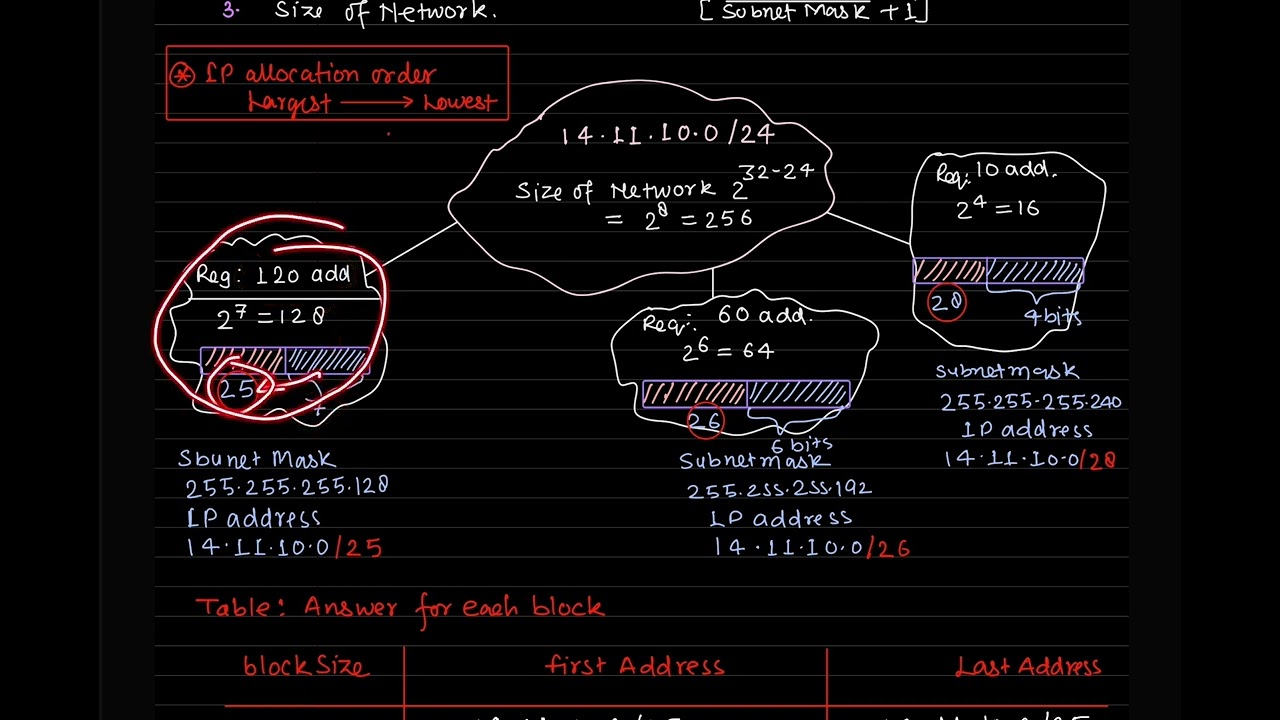 3. Size of Network.
[Subnet Mask + 1]
* IP allocation order
Largest → Lowest
14.11.10.0/24
Size of Network 2^32-24
= 2^8 = 256
Req: 120 add
2^7 = 128
25
7
Sbunet Mask
255.255.255.128
IP address
14.11.10.0/25
Req: 60 add.
2^6 = 64
26
6 bits
Subnetmask
255.255.255.192
IP address
14.11.10.0/26
Req: 10 add.
2^4 = 16
28
4 bits
Subnetmask
255.255.255.240
IP address
14.11.10.0/28
Table: Answer for each block
block Size
first Address
Last Address